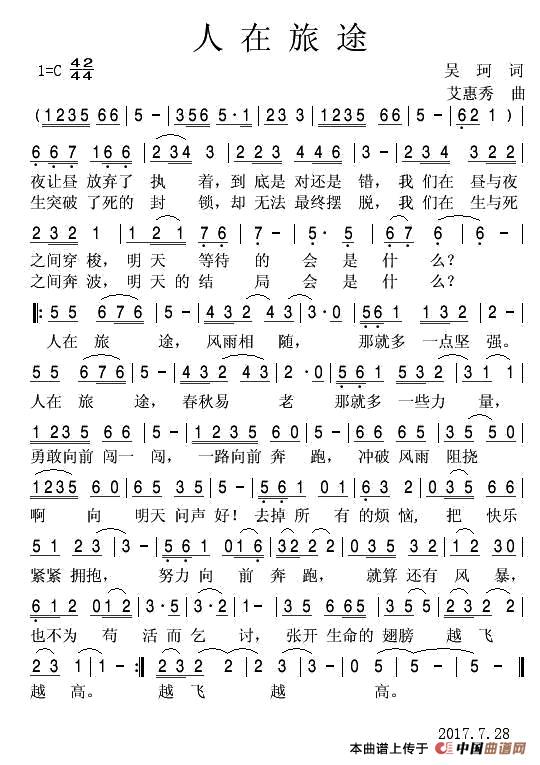 人在旅途
1=C 42
44
吴珂 词
艾惠秀 曲
(1235 66 | 5 - | 356 5·1 | 23 3 | 1235 66 | 5 - | 621 )
667 166 | 234 3 | 223 446 | 334 23 | 667 122
夜让昼 放弃了 执 着，到 底是 对还是 错，我 们在 昼与夜
生突破 了死的 封 锁，却 无法 最终摆 脱，我们在 生与死
232 1 2 | 1 21 77 | 6 - | 5· 5 | 67 6 | 6 -
之间穿 梭，明 天 等待 的 会 是 什 么？
之间奔 波，明 天 的 结 局 会 是 什 么？
5 5 676 | 5 - | 432 43 | 3·0 | 561 132 | 2 -
人在 旅 途，风雨相 随，那就多 一点坚 强。
55 676 | 5 - | 432 43 | 2·0 | 561 532 | 31 1
人在 旅 途，春秋易 老 那就多 一些力 量，
1235 66 | 5 - | 1235 66 | 5 - | 323 66 | 35 50
勇敢向前 闯一 闯，一路向前 奔 跑，冲破 风雨 阻挠
1235 60 | 65 35 | 5 - | 561 01 | 632 2 | 035 66
啊 向 明天 问声 好！去掉 所 有 的烦 恼，把 快乐
51 23 | 3 - | 565 016 | 3222 | 035 32 | 12 30
紧紧 拥抱，努力 向 前 奔 跑，就算 还有 风 暴，
612 012 | 3·5 | 3·2 | 35 665 | 35 52 | 232 2
也不为 苟 活 而 乞 讨，张开 生命的 翅膀 越 飞
23 1 | 1 - :| 232 2 | 2 - | 23 1 | 1 - ||
越 高。越 飞 越 高。
2017.7.28
本曲谱上传于 中国曲谱网